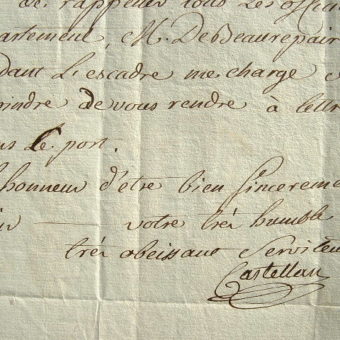 de rappeller tous les officie
artement, M. DeBeaurepair
dant L'escadre me charge
oindre de vous rendre à lettre
us le port.
honneur d'être bien sincereme
votre très humble
très obeissant Serviteu
Castellan